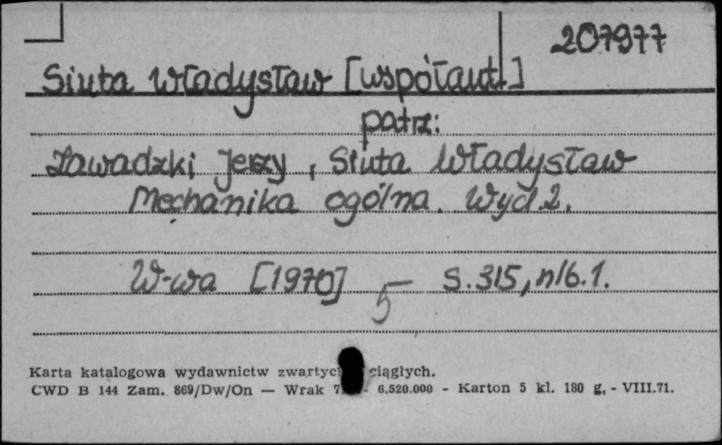 207977
Siuta Władysław [współaut.]
patrz:
Zawadzki Jerzy, Siuta Władysław
Mechanika ogólna. Wyd. 2.
W-wa [1970] 5 S. 315, nlb. 1.
Karta katalogowa wydawnictw ciągłych.
CWD B 144 Zam. 869/Dw/On — Wrak - 6.520.000 - Karton 5 kl. 180 g. - VIII.71.